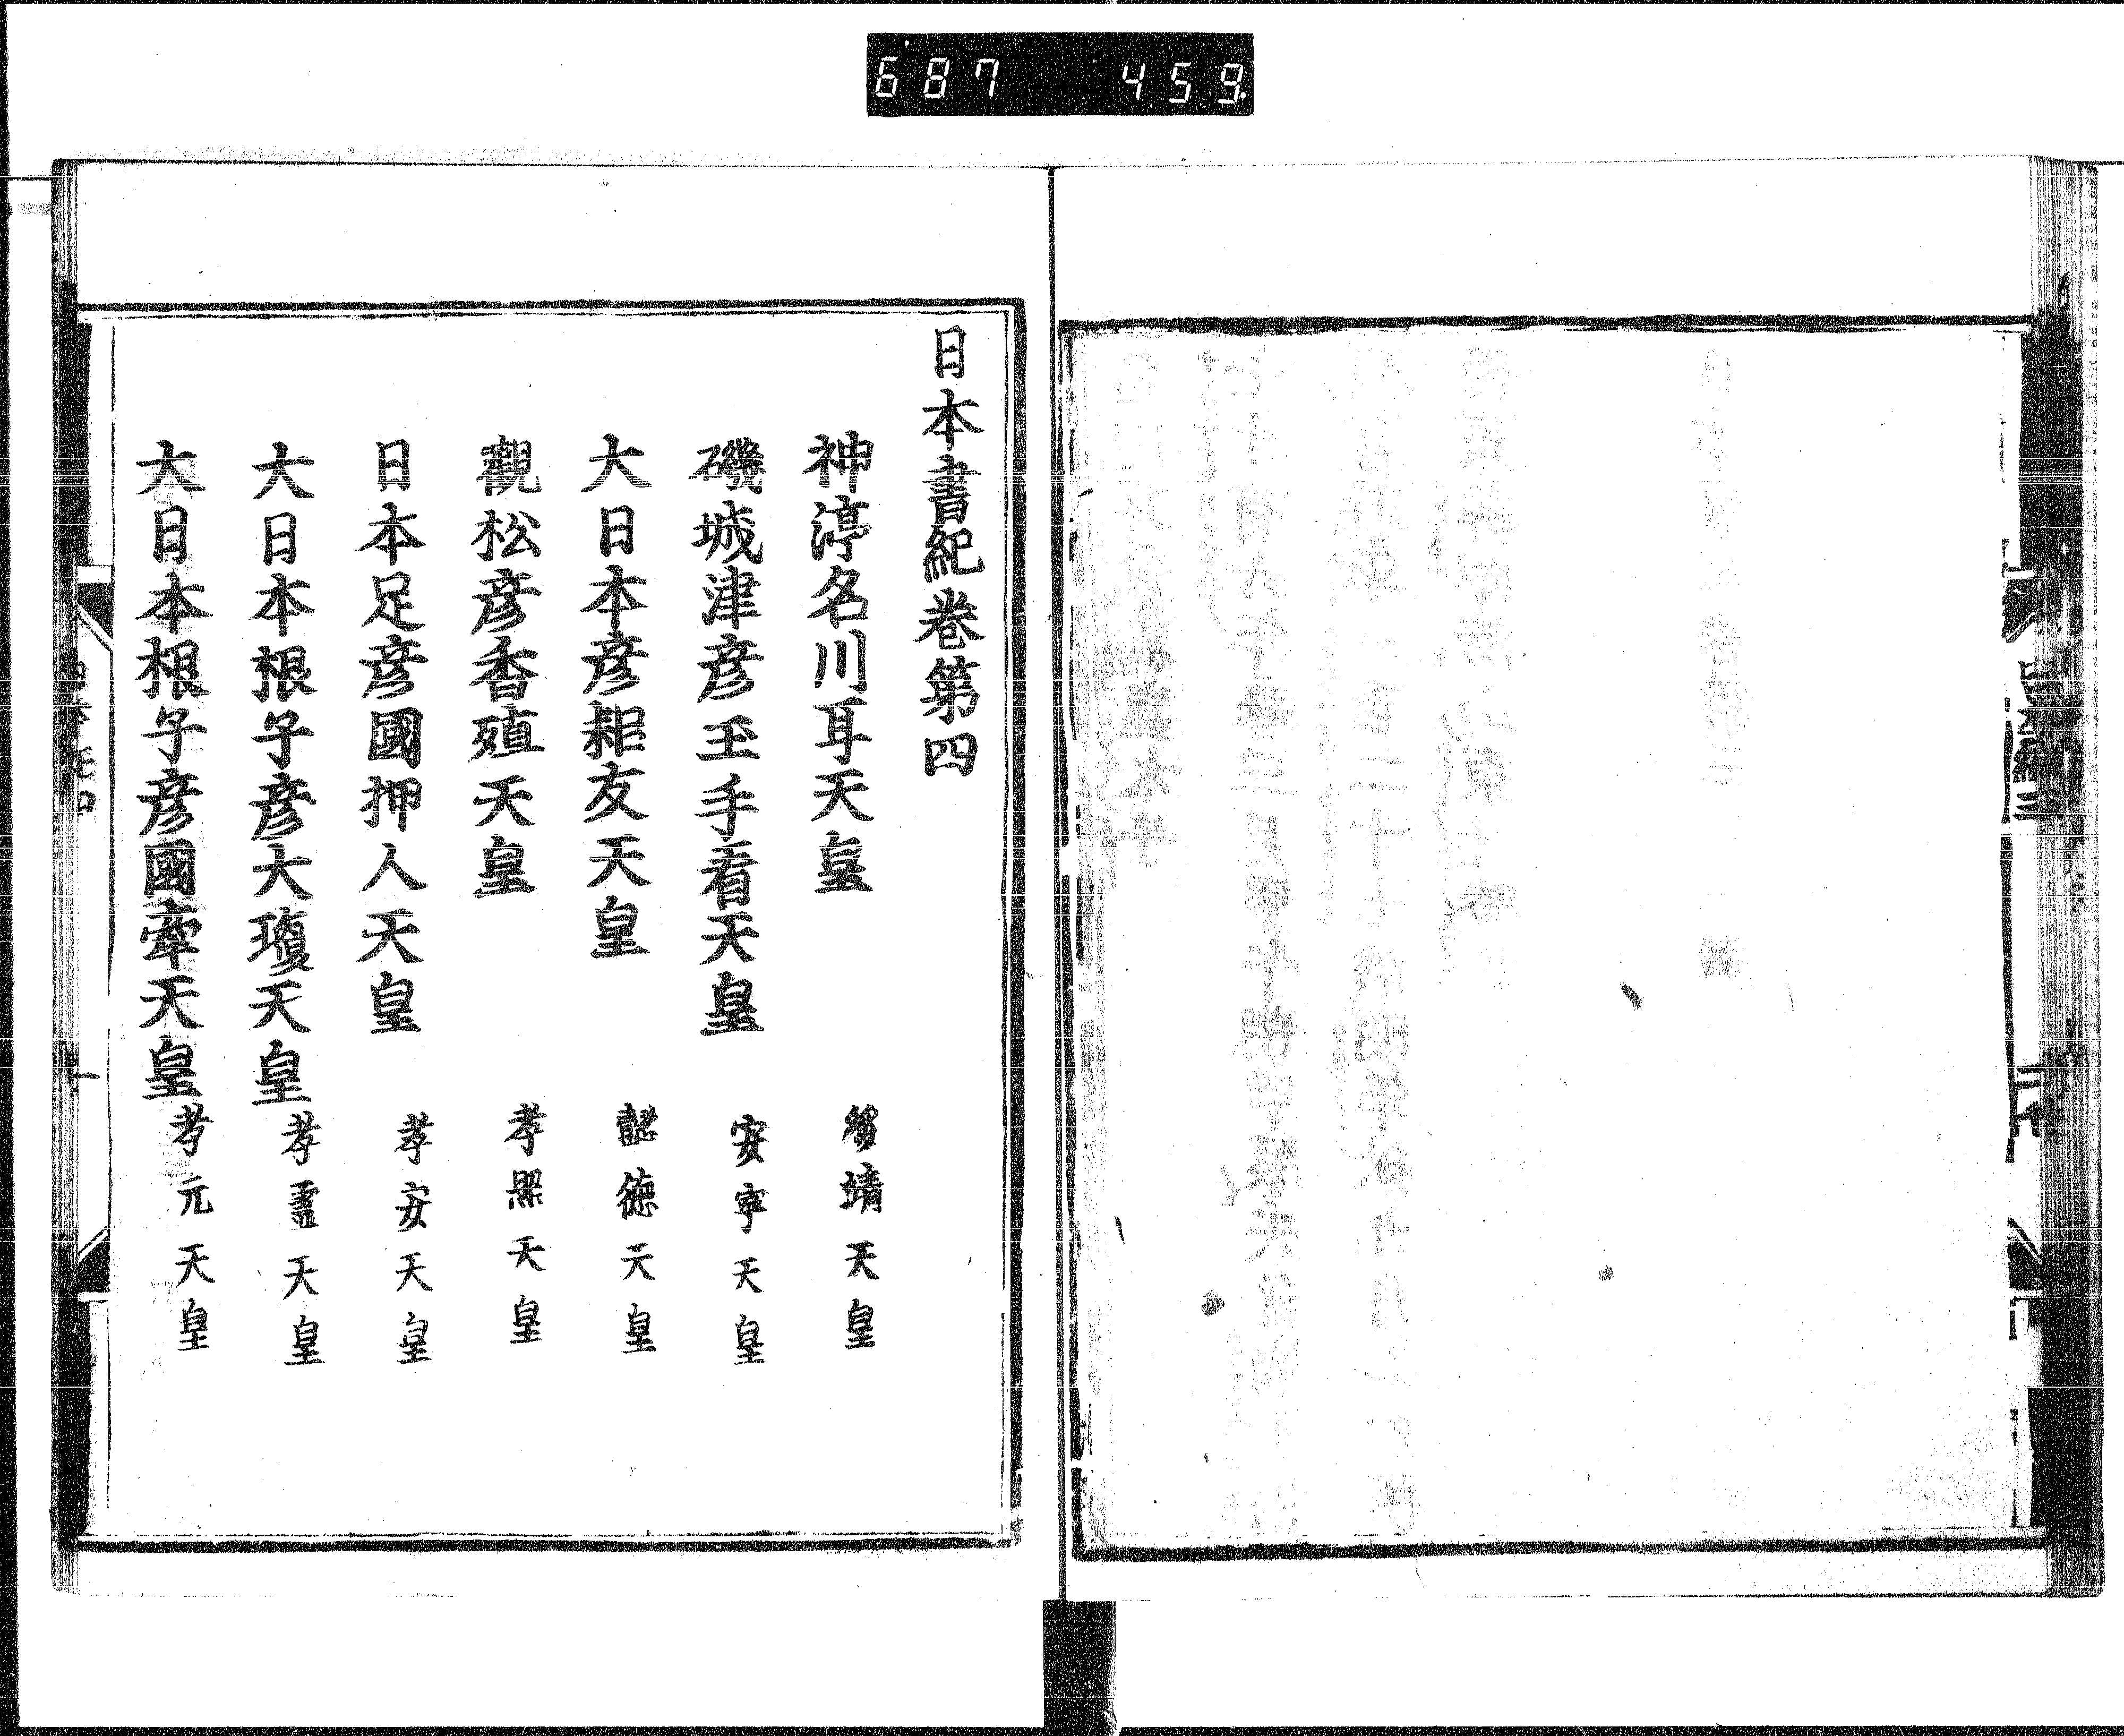 687 459
日本書紀卷第四
神渟名川耳天皇 綏靖天皇
磯城津彦玉手看天皇 安寧天皇
大日本彦耜友天皇 懿德天皇
觀松彦香殖天皇 孝照天皇
日本足彦國押人天皇 孝安天皇
大日本根子彦大瓊天皇 孝靈天皇
大日本根子彦國牽天皇 孝元天皇